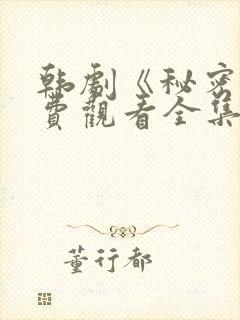 韩剧《秘密
费观看全集
董行都